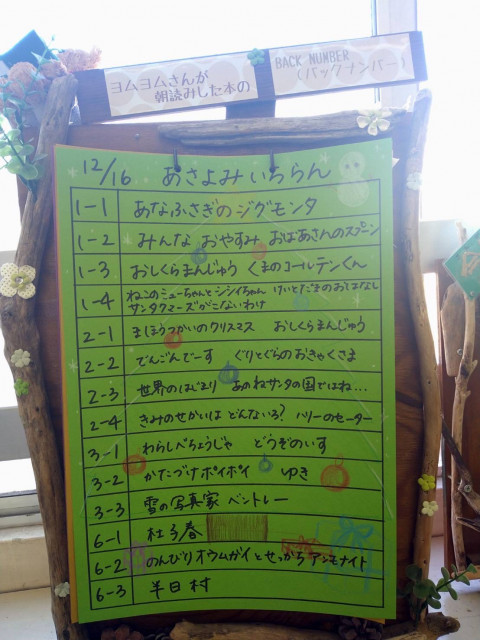 ヨムヨムさんが
朝読みした本の
BACK NUMBER
(バックナンバー)
12/16 あさよみ いちらん
1-1 あなふさぎのジグモンタ
1-2 みんな おやすみ おばあさんのスプーン
1-3 おしくらまんじゅう くまのコールテンくん
1-4 ねこのミューちゃんとシシイちゃん けいとだまのおはなし
サンタクロースがこないわけ
2-1 まほうつかいのクリスマス おしくらまんじゅう
2-2 でんごんでーす ぐりとぐらのおきゃくさま
2-3 世界のはじまり あのねサンタの国ではね…
2-4 きみのせかいは どんないろ? ハリーのセーター
3-1 わらしべちょうじゃ どうぞのいす
3-2 かたづけポイポイ ゆき
3-3 雪の写真家 ベントレー
6-1 杜子春
6-2 のんびりオウムガイとせっかちアンモナイト
6-3 半日村